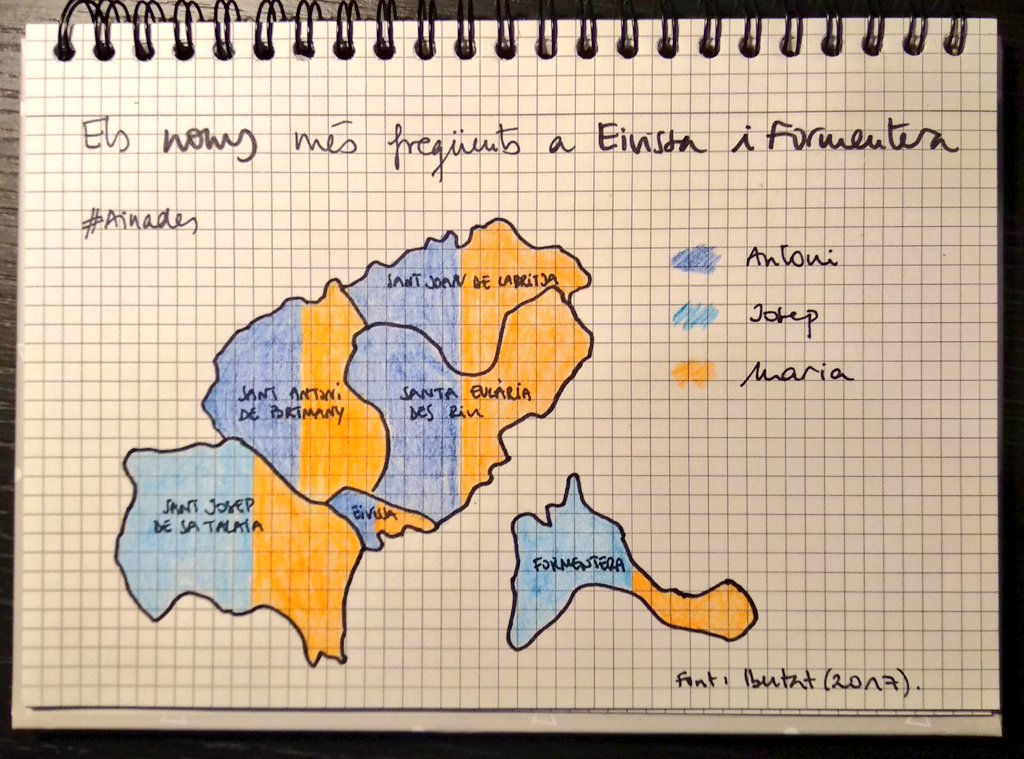 Els noms més freqüents a Eivissa i Formentera
#Ainades
Antoni
Josep
Maria
SANT JOAN DE LABRITJA
SANT ANTONI
DE PORTMANY
SANTA EULÀRIA
DES RIU
SANT JOSEP
DE SA TALAIA
EIVISSA
FORMENTERA
Font: Ibestat (2017).